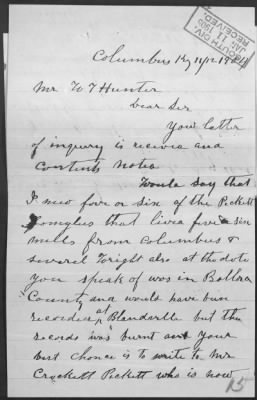 SOUTH DIV.
RECEIVED
Columbus Ky
Mr. W T Hunter
Dear Sir
Your letter
of inquery is receivd and
contents noted
Would say that
I new five or six of the Pickett
famylys that lived five or six
mills from Columbus &
several Wright also at the date
you speak of was in Ballard
County and would have bin
recorded at Blandville but the
records was burnt and your
best chance is to write to Mr
Crockett Pickett who is now
15